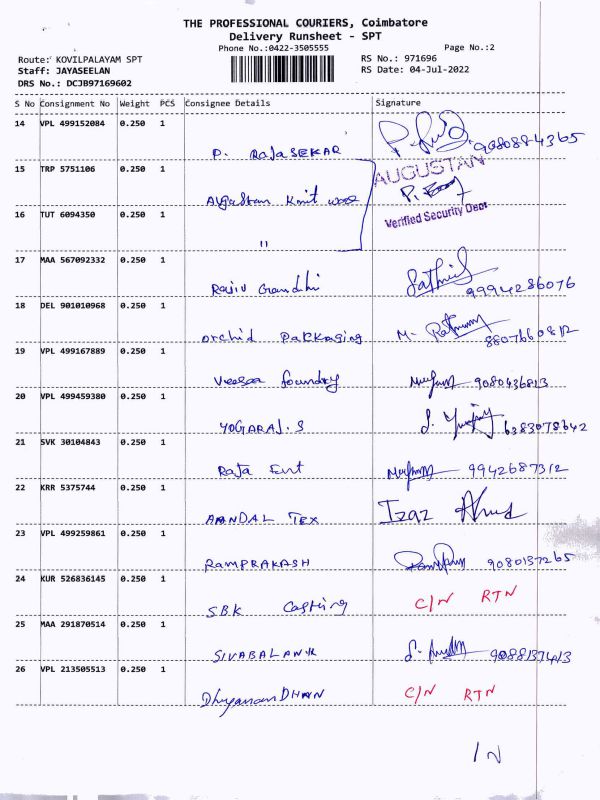 THE PROFESSIONAL COURIERS, Coimbatore
Delivery Runsheet - SPT
Phone No.:0422-3505555 Page No.:2
Route: KOVILPALAYAM SPT RS No.: 971696
Staff: JAYASEELAN RS Date: 04-Jul-2022
DRS No.: DCJB97169602
S No Consignment No Weight PCS Consignee Details Signature
14 VPL 499152084 0.250 1
P. RAJASEKAR 9080884365
15 TRP 5751106 0.250 1
AUGUSTAN
Augastan Knit wear
16 TUT 6094350 0.250 1
Verified Security Dept
"
17 MAA 567092332 0.250 1
Rajiv Gandhi 9994286076
18 DEL 901010968 0.250 1
orchid packaging 8807660812
19 VPL 499167889 0.250 1
Veesaa foundry 9080436813
20 VPL 499459380 0.250 1
YOGARAJ.S 6383078642
21 SVK 30104843 0.250 1
Raja Ent 9942687312
22 KRR 5375744 0.250 1
AANDAL TEX Izaz Ahmed
23 VPL 499259861 0.250 1
RAMPRAKASH 9080137265
24 KUR 526836145 0.250 1
SBK Casting C/N RTN
25 MAA 291870514 0.250 1
SIVABALAN K 9088137413
26 VPL 213505513 0.250 1
Dhyanam DHAN C/N RTN